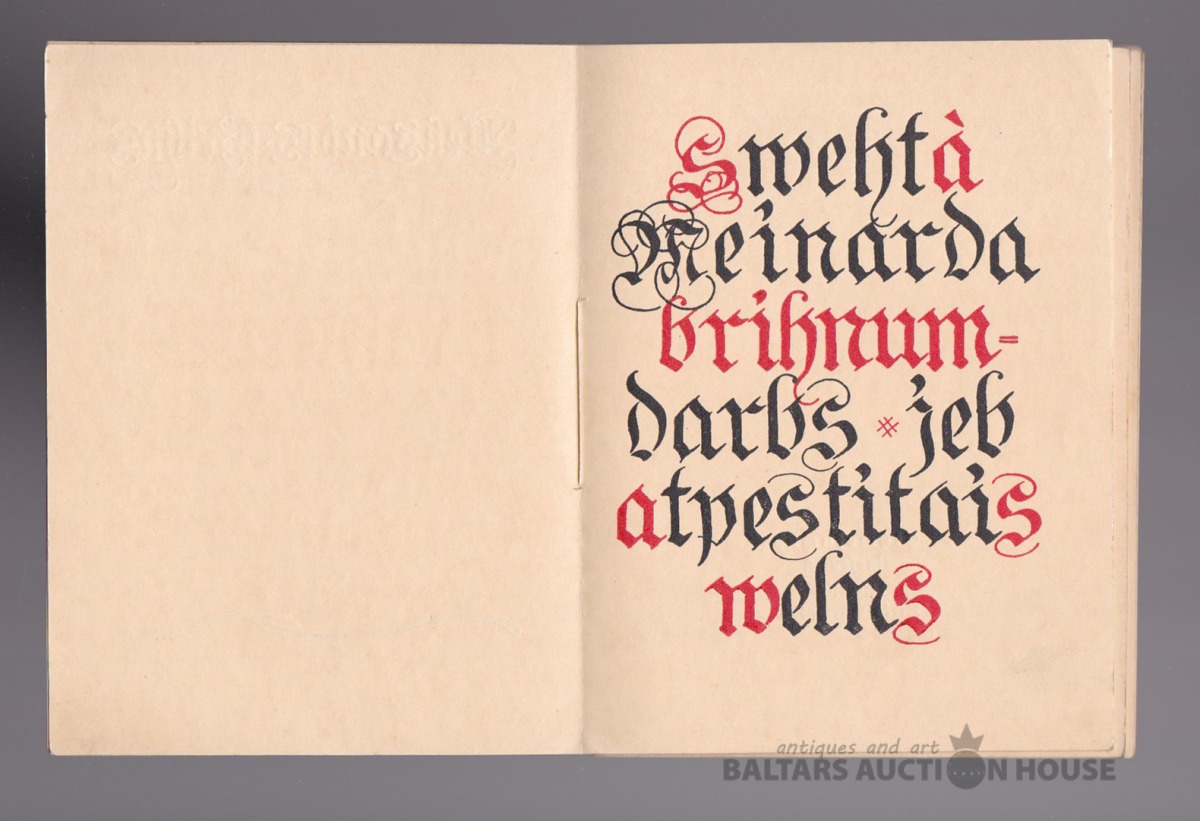 Swehtà
Meinarda
brihnum-
darbs * jeb
atpestitais
welns
antiques and art
BALTARS AUCTION HOUSE